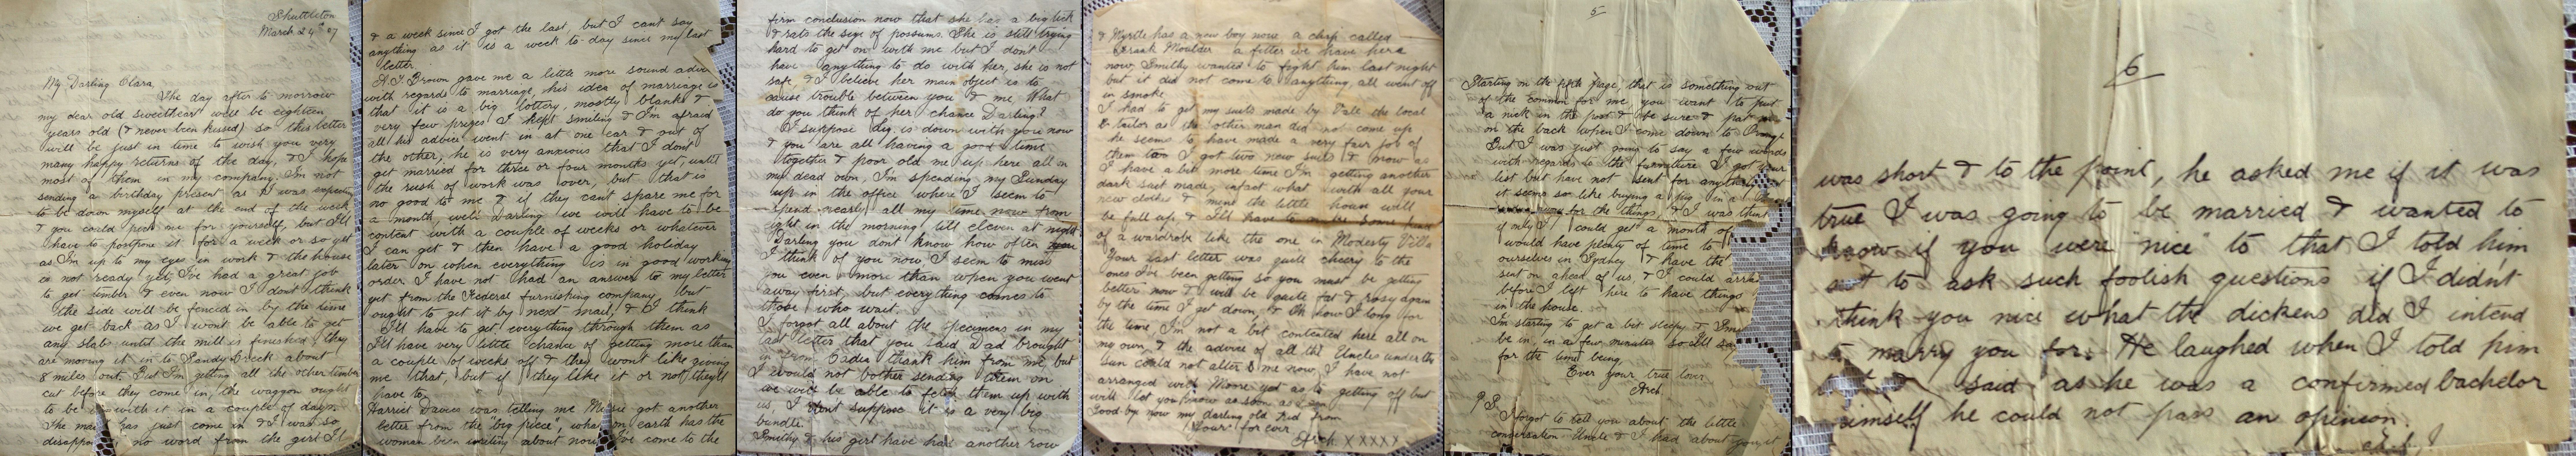 Shuttleton
March 24th 07
My Darling Clara
The day after to morrow
my dear old sweetheart will be eighteen
years old (& never been kissed) so this letter
will be just in time to wish you very
many happy returns of the day, & I hope
most of them in my company. I'm not
sending a birthday present as I was expecting
to be down myself at the end of the week
& you could pick one for yourself, but I'll
have to postpone it for a week or so yet
as I'm up to my eyes in work & the house
is not ready yet. I've had a great job
to get timber & even now I don't think
the side will be fenced in by the time
we get back as I wont be able to get
any slabs until the mill is finished, they
are moving it in to Sandy Creek about
8 miles out. But I'm getting all the other timber
cut before they come in, the waggon ought
to be with it in a couple of days.
The mail has just come in & I was so
disapp no word from the girl It
& a week since I got the last, but I cant say
anything as it is a week to-day since my last
letter.
A. J. Brown gave me a little more sound advi
with regards to marriage, his idea of marriage is
that it is a big lottery, mostly blanks &
very few prizes I kept smiling & I'm afraid
all his advice went in at one ear & out of
the other, he is very anxious that I don't
get married for three or four months yet, until
the rush of work was over, but that is
no good to me & if they can't spare me for
a month, well Darling we will have to be
content with a couple of weeks or whatever
I can get & then have a good holiday
later on when everything is in good working
order I have not had an answer to my letter
yet from the Federal furnishing company, but
ought to get it by next mail, & I think
I'll have to get everything through them as
I'll have very little chance of getting more than
a couple of weeks off & they wont like giving
me that, but if they like it or not they'll
have to.
Harriet Davies was telling me got another
letter from the big piece, what on earth has the
woman been about now I've come to the
firm conclusion now that she has a big lick
& rats the size of possums. She is still trying
hard to get on with me but I don't
have anything to do with her, she is not
safe, & I believe her main object is to
cause trouble between you & me, What
do you think of her chance Darling?
I suppose Dig is down with you now
& you are all having a good time
together & poor old me up here all on
my dead own, I'm spending my Sunday
up in the office where I seem to
spend nearly all my time now from
eight in the morning till eleven at night
Darling you dont know how often
I think of you now I seem to miss
you even more than when you went
away first, but everything comes to
those who wait.
I forgot all about the specimens in my
last letter that you said Dad brought
in from Cadia thank him from me, but
I would not bother sending them on
we will be able to fetch them up with
us, I dont suppose it is a very big
bundle.
Smithy & his girl have had another row
& Myrtle has a new boy now a chap called
Frank Moulder a fitter we have here
now, Smithy wanted to fight him last night
but it did not come to anything, all went off
in smoke.
I had to get my suits made by Vale the local
tailor as the other man did not come up
he seems to have made a very fair job of
them too I got two new suits & now as
I have a bit more time I'm getting another
dark suit made, infact what with all your
new clothes & mine the little house will
be full up, & I'll have to
of a wardrobe like the one in Modesty Villa
Your last letter was quite cheery to the
ones I've been getting so you must be getting
better now & will be quite fat & rosy again
by the time I get down, & Oh how I long for
the time, I'm not a bit contented here all on
my own, & the advice of all the Uncles under the
Sun could not alter me now, I have not
arranged with Moore yet as to getting off but
will let you know as soon as
Good by now my darling old kid from
Your for ever
Arch. X X X X X
5
Starting on the fifth page, that is something out
of the common for me, you want to put
a nick in the post & be sure & pat me
on the back when I come down to Orange
But I was just going to say a few words
with regards to the furniture I got your
list but have not sent for anything yet
it seems so like buying a pig in a
for the things, & I was think
if only I could get a month off
would have plenty of time to
ourselves in Sydney & have the
sent on ahead of us, & I could arra
before I left here to have things
in the house.
I'm starting to get a bit sleepy &
be in, in a few minutes so I'll say
for the time being,
Ever your true lover
Arch.
P.S.
Forgot to tell you about the little
conversation Uncle & I had about you, it
6
was short & to the point, he asked me if it was
true I was going to be married & wanted to
know if you were "nice" to that I told him
not to ask such foolish questions if I didn't
think you nice what the dickens did I intend
to marry you for. He laughed when I told him
said as he was a confirmed bachelor
himself he could not pass an opinion.